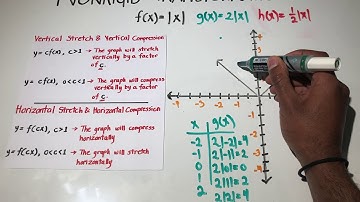 f(x)=|x| g(x)=2|x| h(x)=½|x|
Vertical Stretch & Vertical Compression
y=cf(x), c>1 → The graph will stretch
vertically by a factor
of c.
y=cf(x), 0<c<1 → The graph will compress
vertically by a factor
of c.
Horizontal Stretch & Horizontal Compression
y=f(cx), c>1 → The graph will compress
horizontally
y=f(cx), 0<c<1 → The graph will stretch
horizontally
x g(x)
-2 2|-2|=4
-1 2|-1|=2
0 2|0|=0
1 2|1|=2
2 2|2|=4